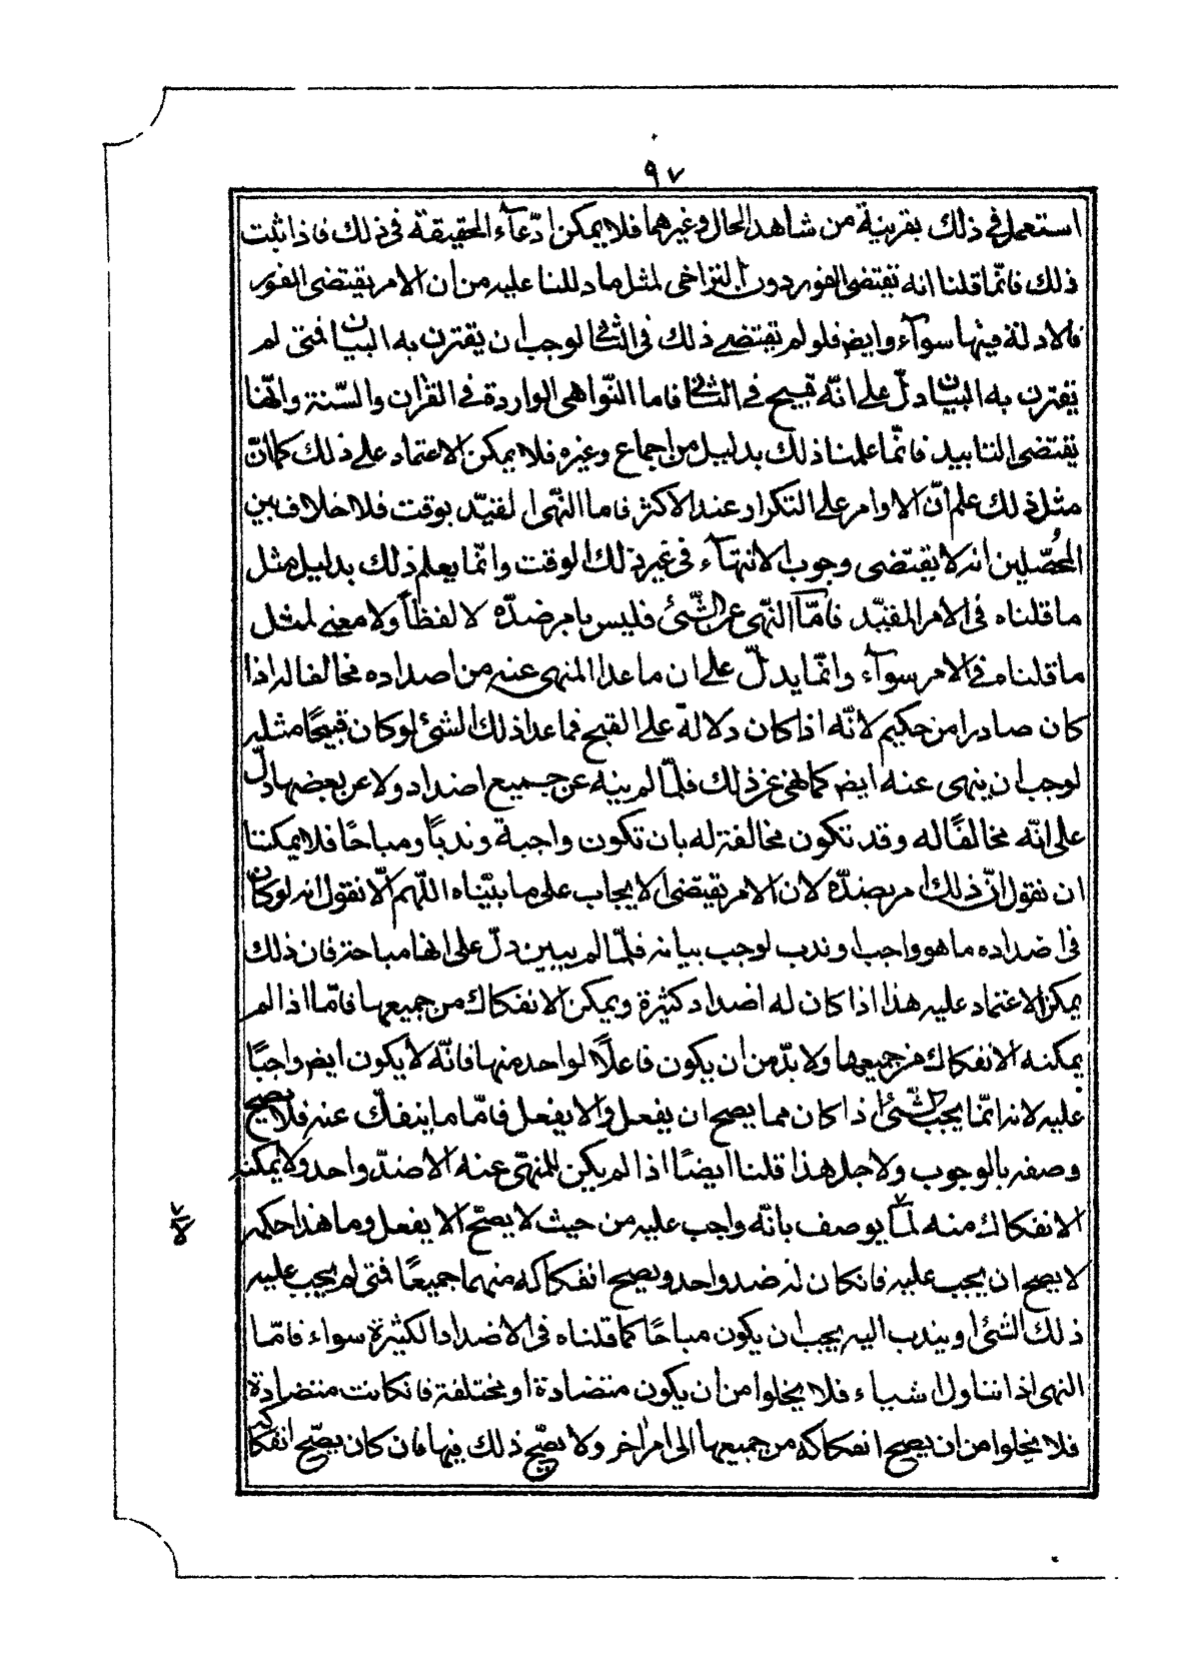 ٩٧
استعمل في ذلك بقرينة من شاهد الحال وغيرهما فلا يمكن ادّعآء الحقيقة في ذلك فاذا ثبت
ذلك فانّما قلنا انه تقتضى الفور دون التراخى لمثل ما دللنا عليه من ان الامر يقتضى الفور
فالادلة فيها سوآء وايضا فلو لم تقتضى ذلك في الثانى لوجب ان يقترن به البيان فمتى لم
يقترن به البيان دلّ على انّه قبيح في الثانى فاما النّواهى الواردة في القرآن والسّنة وانّها
يقتضى التابيد فانّما علمنا ذلك بدليل من اجماع وغيره فلا يمكن الاعتماد على ذلك كما انّ
مثل ذلك علم انّ الاوامر على التكرار عند الاكثر فاما النّهى المقيّد بوقت فلا خلاف بين
المحُصّلين انه لا يقتضى وجوب الانتهآء في غير ذلك الوقت وانّما يعلم ذلك بدليل مثل
ما قلناه في الامر المقيّد فامّا النّهى عن الشّئ فليس بامر ضدّه لا لفظاً ولا معنى لمثل
ما قلناه في الامر سوآء وانّما يدلّ على ان ما عدا المنهى عنه من اضداده مخالفا له اذا
كان صادرا من حكيم لانّه اذا كان دلالة على القبح فما عدا ذلك الشئ لو كان قبيحًا مثله
لوجب ان ينهى عنه ايض كما نهى عن ذلك فلمّا لم ينه عن جميع اضداد ولا عن بعضها دلّ
على انّه مخالفًا له وقد تكون مخالفة له بان تكون واجبة وندبًا ومباحًا فلا يمكننا
ان نقول انّ ذلك امر بضدّه لان الامر يقتضى الايجاب على ما بيّناه اللّهم الّا نقول انه لو كان
في اضداده ما هو واجب او ندب لوجب بيانه فلمّا لم يبين دلّ على انها مباحة فان ذلك
يمكن الاعتماد عليه هذا اذا كان له اضداد كثيرة ويمكن الانفكاك من جميعها فامّا اذا لم
يمكنه الانفكاك من جميعها ولا بدّ من ان يكون فاعلًا لواحد منها فانّه لا يكون ايض واجبًا
عليه لانه انّما يجب الشّئ اذا كان مما يصح ان يفعل والا يفعل فامّا ما ينفكّ عنه فلا يصح
وصفه بالوجوب ولاجل هذا قلنا ايضًا اذا لم يكن للمنهى عنه الا ضدّ واحد ولا يمكنه
الانفكاك منه لا يوصف بانّه واجب عليه من حيث لا يصحّ الا يفعل وما هذا حكمه
لا يصح ان يجب عليه فان كان له ضد واحد ويصح انفكاكه منهما جميعًا فمتى لم يجب عليه
ذلك الشئ او يندب اليه يجب ان يكون مباحًا كما قلناه في الاضداد الكثيرة سواء فامّا
النهى اذا تناول اشياء فلا يخلوا من ان يكون متضادة او مختلفة فان كانت متضادة
فلا يخلوا من ان يصح انفكاكه من جميعها الى امر اخر ولا يصّح ذلك فيها فان كان يصّح انفكاكه